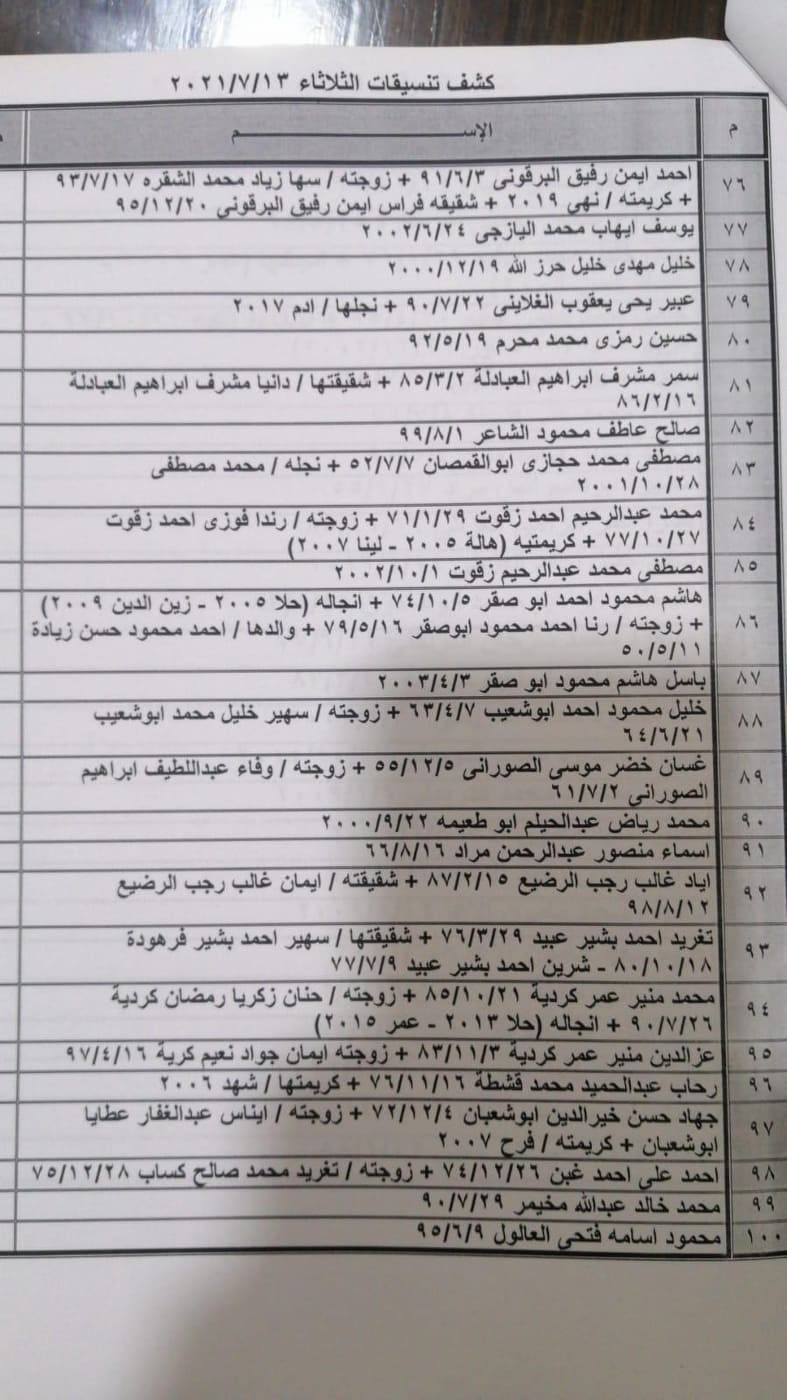 كشف تنسيقات الثلاثاء ٢٠٢١/٧/١٣
م الإســـــــــم
٧٦ احمد ايمن رفيق البرقونى ٩١/٦/٣ + زوجته / سها زياد محمد الشقره ٩٣/٧/١٧
+ كريمته / نهى ٢٠١٩ + شقيقه فراس ايمن رفيق البرقونى ٩٥/١٢/٢٠
٧٧ يوسف ايهاب محمد اليازجى ٢٠٠٢/٦/٢٤
٧٨ خليل مهدى خليل حرز الله ٢٠٠٠/١٢/١٩
٧٩ عبير يحى يعقوب الغلاينى ٩٠/٧/٢٢ + نجلها / ادم ٢٠١٧
٨٠ حسين رمزى محمد محرم ٩٢/٥/١٩
٨١ سمر مشرف ابراهيم العبادلة ٨٥/٣/٢ + شقيقتها / دانيا مشرف ابراهيم العبادلة
٨٦/٢/١٦
٨٢ صالح عاطف محمود الشاعر ٩٩/٨/١
٨٣ مصطفى محمد حجازى ابوالقمصان ٥٢/٧/٧ + نجله / محمد مصطفى
٢٠٠١/١٠/٢٨
٨٤ محمد عبدالرحيم احمد زقوت ٧١/١/٢٩ + زوجته / رندا فوزى احمد زقوت
٧٧/١٠/٢٧ + كريمتيه (هالة ٢٠٠٥ - لينا ٢٠٠٧)
٨٥ مصطفى محمد عبدالرحيم زقوت ٢٠٠٢/١٠/١
٨٦ هاشم محمود احمد ابو صقر ٧٤/١٠/٥ + انجاله (حلا ٢٠٠٥ - زين الدين ٢٠٠٩)
+ زوجته / رنا احمد محمود ابوصقر ٧٩/٥/١٦ + والدها / احمد محمود حسن زيادة
٥٠/٥/١١
٨٧ باسل هاشم محمود ابو صقر ٢٠٠٣/٤/٣
٨٨ خليل محمود احمد ابوشعيب ٦٣/٤/٧ + زوجته / سهير خليل محمد ابوشعيب
٦٤/٦/٢١
٨٩ غسان خضر موسى الصورانى ٥٥/١٢/٥ + زوجته / وفاء عبداللطيف ابراهيم
الصورانى ٦١/٧/٢
٩٠ محمد رياض عبدالحيلم ابو طعيمه ٢٠٠٠/٩/٢٢
٩١ اسماء منصور عبدالرحمن مراد ٦٦/٨/١٦
٩٢ اياد غالب رجب الرضيع ٨٧/٢/١٥ + شقيقته / ايمان غالب رجب الرضيع
٩٨/٨/١٢
٩٣ تغريد احمد بشير عبيد ٧٦/٣/٢٩ + شقيقتها / سهير احمد بشير فرهودة
٨٠/١٠/١٨ - شرين احمد بشير عبيد ٧٧/٧/٩
٩٤ محمد منير عمر كردية ٨٥/١٠/٢١ + زوجته / حنان زكريا رمضان كردية
٩٠/٧/٢٦ + انجاله (حلا ٢٠١٣ - عمر ٢٠١٥)
٩٥ عزالدين منير عمر كردية ٨٣/١١/٣ + زوجته ايمان جواد نعيم كرية ٩٧/٤/١٦
٩٦ رحاب عبدالحميد محمد قشطة ٧٦/١١/١٦ + كريمتها / شهد ٢٠٠٦
٩٧ جهاد حسن خيرالدين ابوشعبان ٧٢/١٢/٤ + زوجته / ايناس عبدالغفار عطايا
ابوشعبان + كريمته / فرح ٢٠٠٧
٩٨ احمد على احمد غبن ٧٤/١٢/٢٦ + زوجته / تغريد محمد صالح كساب ٧٥/١٢/٢٨
٩٩ محمد خالد عبدالله مخيمر ٩٠/٧/٢٩
١٠٠ محمود اسامه فتحى العالول ٩٥/٦/٩